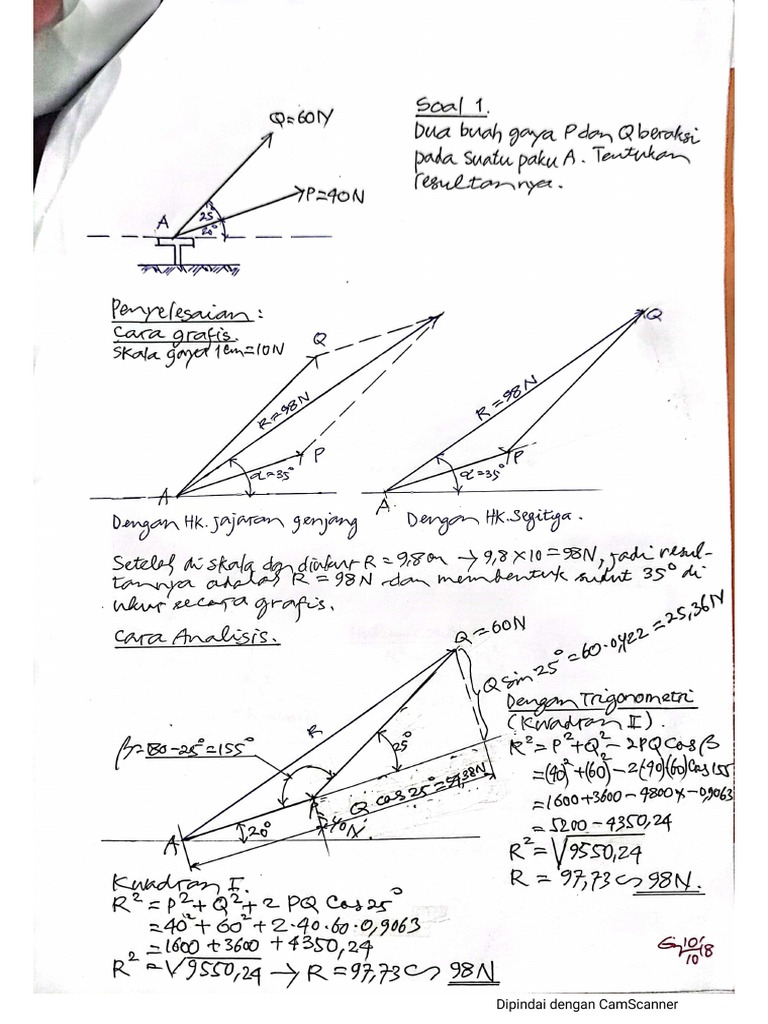 Soal 1.
Dua buah gaya P dan Q beraksi
pada suatu paku A. Tentukan
resultannya.
Q=60N
P=40N
A
25
20°
Penyelesaian:
Cara grafis.
Skala gaya 1cm=10N
Q
R=98N
P
α=35°
A
Q
R=98N
P
α=35°
A
Dengan HK. Jajaran genjang
Dengan HK. Segitiga.
Setelah di skala dan diukur R = 9,8cm → 9,8×10=98N, jadi resul-
tannya adalah R = 98N dan membentuk sudut 35° di
ukur secara grafis.
Cara Analisis.
Q=60N
Q sin 25° = 60·0,422 = 25,36N
R
β=180-25°=155°
25°
P
Q cos 25° = 54,38N
=40N
20°
A
Dengan Trigonometri
(Kwadran II).
R²=P²+Q²-2PQ Cos β
=(40)²+(60)²-2(40)(60)Cos 155
=1600+3600-4800x-0,9063
=5200-4350,24
R²=√9550,24
R = 97,73 ∽ 98N.
Kwadran I.
R²=P²+Q²+2 PQ Cos 25°
=40²+60²+2·40·60·0,9063
=1600+3600+4350,24
R²=√9550,24 → R=97,73 ∽ 98N
10/10'18
Dipindai dengan CamScanner